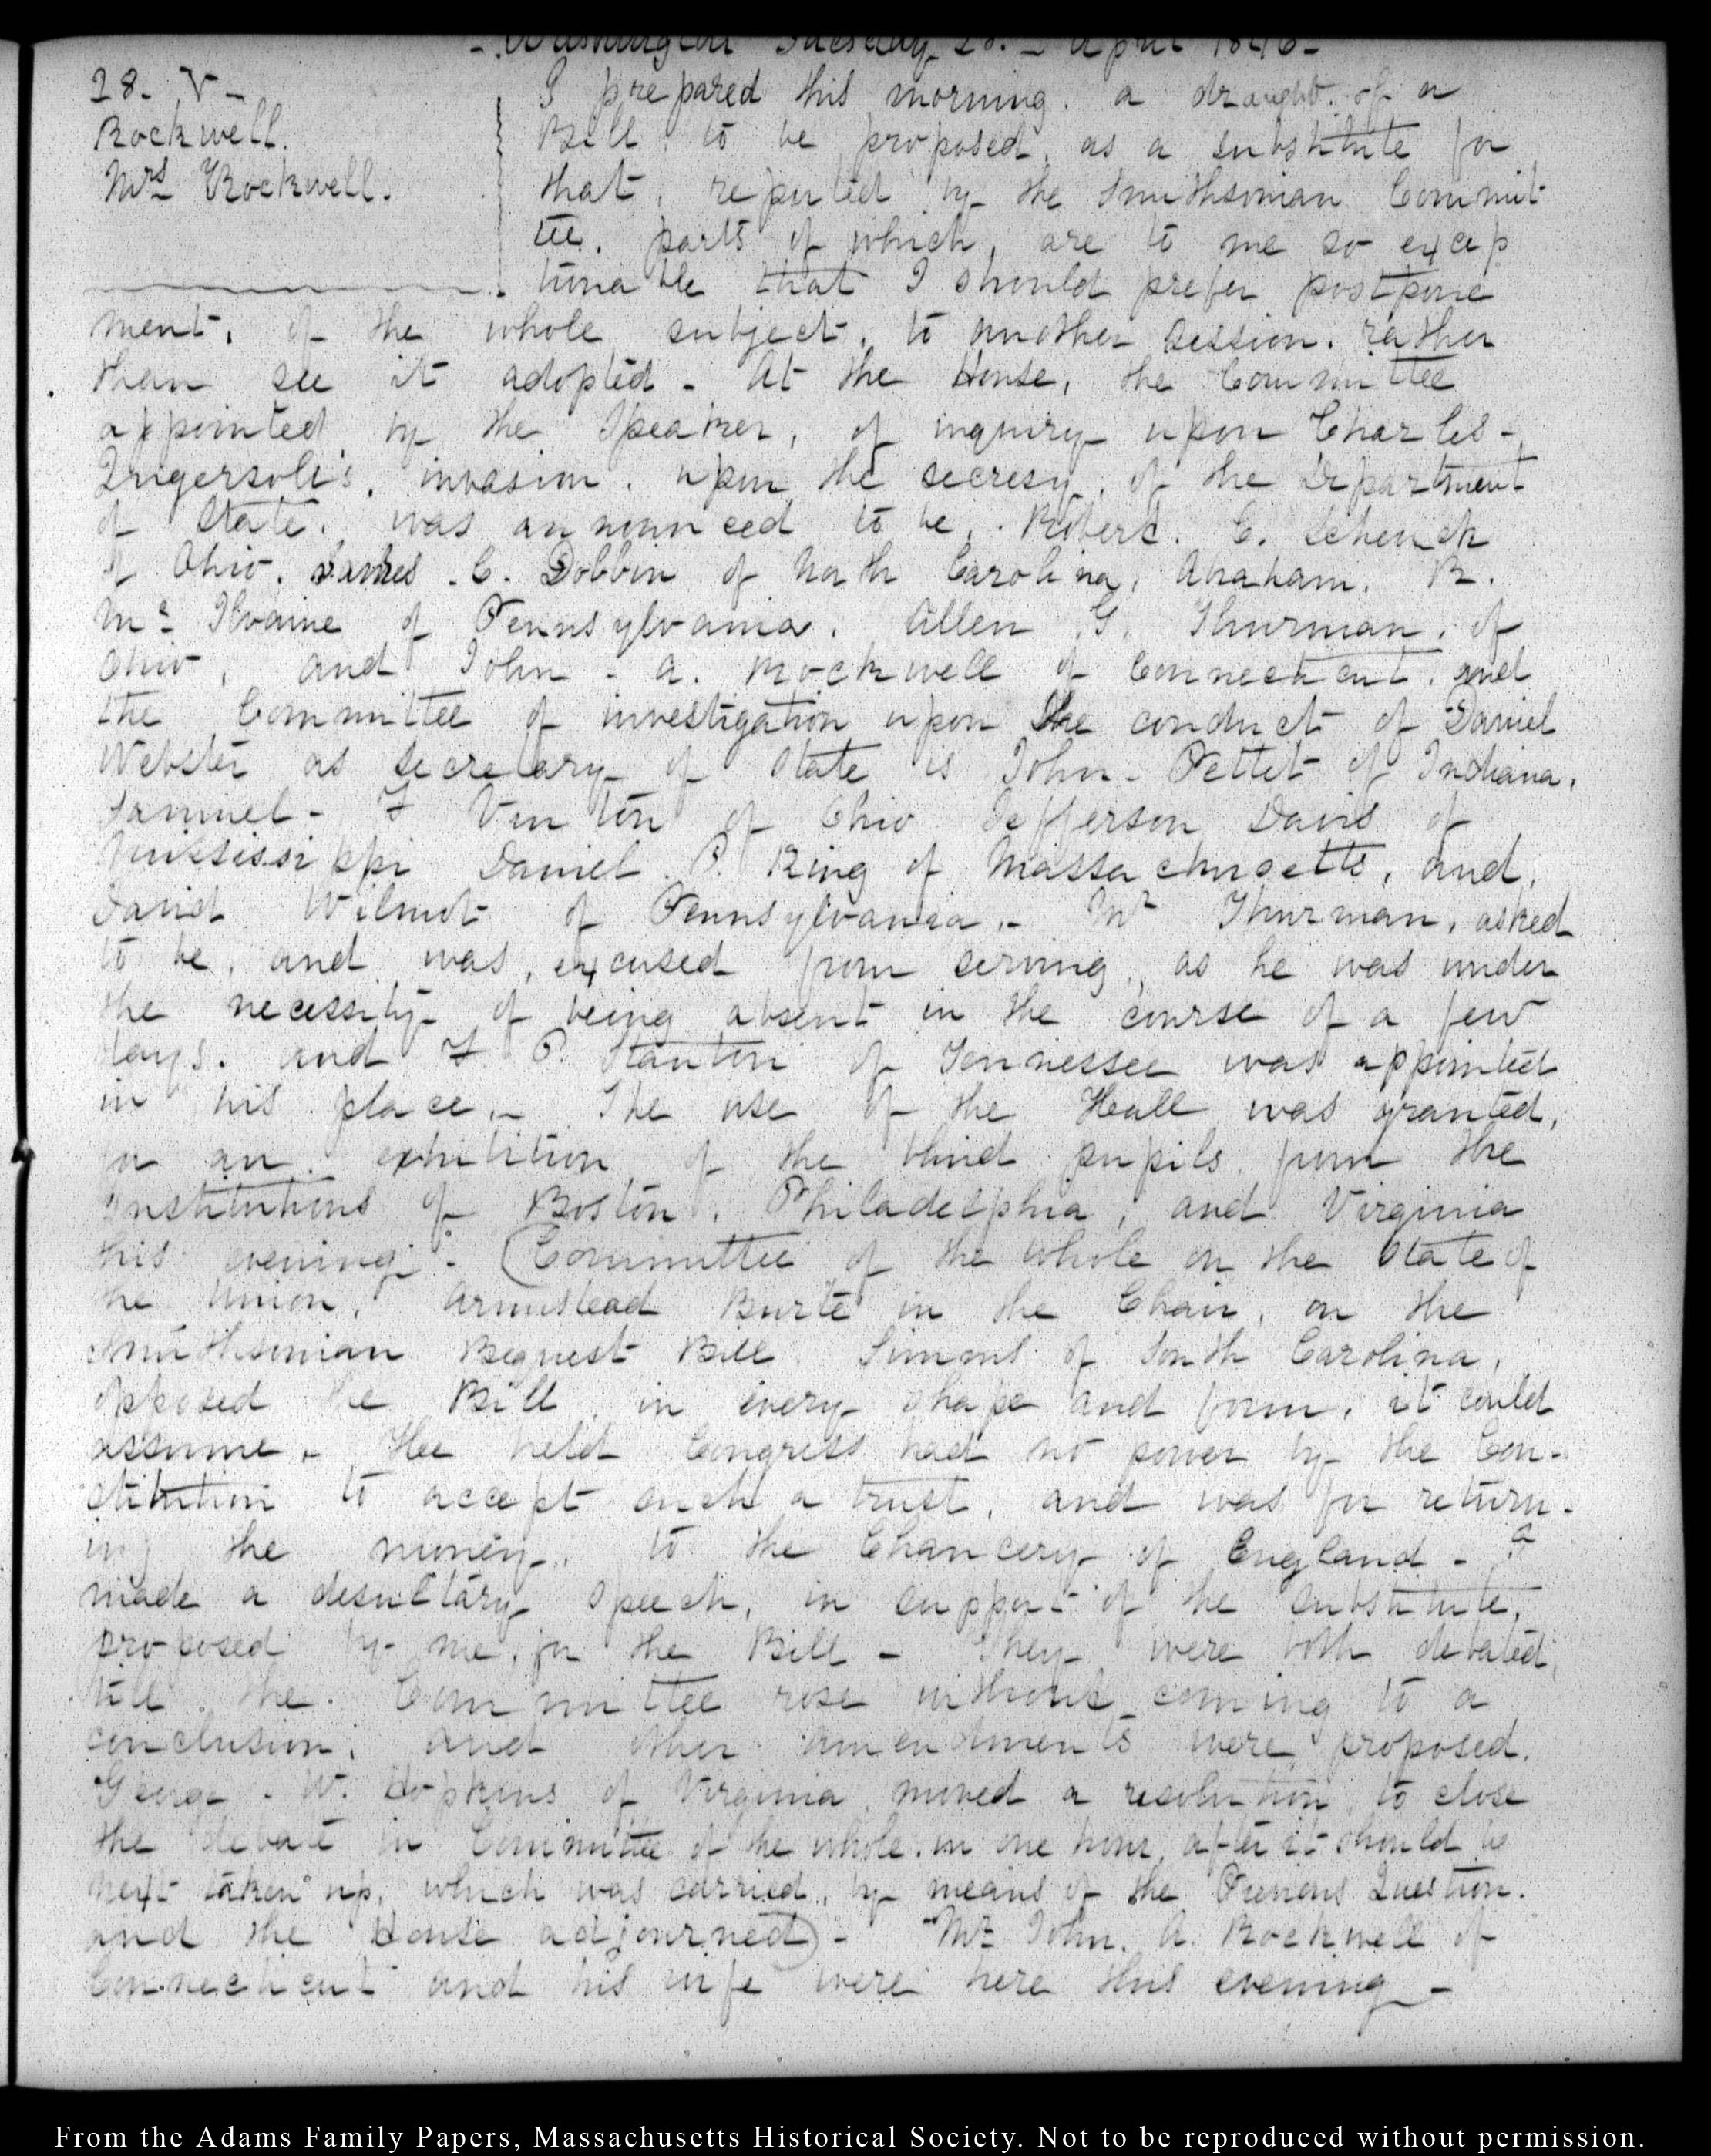 - Washington Tuesday 28. - April 1846 -
28. V -
Rockwell.
Mrs Rockwell.
I prepared this morning. a draught of a
Bill to be proposed, as a substitute for
that, reported by the Smithsonian Commit
tee. parts of which, are to me so excep
tionable that I should prefer postpone
ment, of the whole subject, to another session. rather
than see it adopted - At the House, the Committee
appointed by the Speaker, of inquiry upon Charles -
Ingersoll's. invasion. upon the secresy, of the Department
of State. was announced to be, Robert. C. Schenck
of Ohio. James. C. Dobbin of North Carolina, Abraham. R.
Mc Ilvaine of Pennsylvania. Allen. G. Thurman, of
Ohio, and John - A. Rockwell of Connecticut. and
the Committee of investigation upon the conduct of Daniel
Webster as Secretary of State is John - Pettit of Indiana.
Samuel - F Vinton of Ohio Jefferson Davis of
Mississippi Daniel. P. King of Massachusetts, and.
David Wilmot of Pennsylvania. - Mr Thurman, asked
to be, and was, excused from serving, as he was under
the necessity of being absent in the course of a few
days. and F P. Stanton of Tennessee was appointed
in his place. - The use of the Hall was granted,
for an exhibition of the blind pupils from the
institutions of Boston, Philadelphia, and Virginia
this evening. - (Committee of the whole on the State of
the Union, Armistead Burt in the Chair, on the
Smithsonian Bequest Bill. Simons of South Carolina,
opposed the Bill in every shape and form, it could
assume. - He held Congress had no power by the Con-
stitution to accept such a trust, and was for return-
ing the money. to the Chancery of England -
made a desultary speech, in support of the substitute,
proposed by me, for the Bill - They were both debated
till the Committee rose without coming to a
conclusion. and other amendments were proposed.
George. W. Hopkins of Virginia moved a resolution, to close
the debate in Committee of the whole. in one hour, after it should be
next taken up, which was carried, by means of the Previous Question.
and the House adjourned) - Mr John. A. Rockwell of
Connecticut and his wife were here this evening -
From the Adams Family Papers, Massachusetts Historical Society. Not to be reproduced without permission.